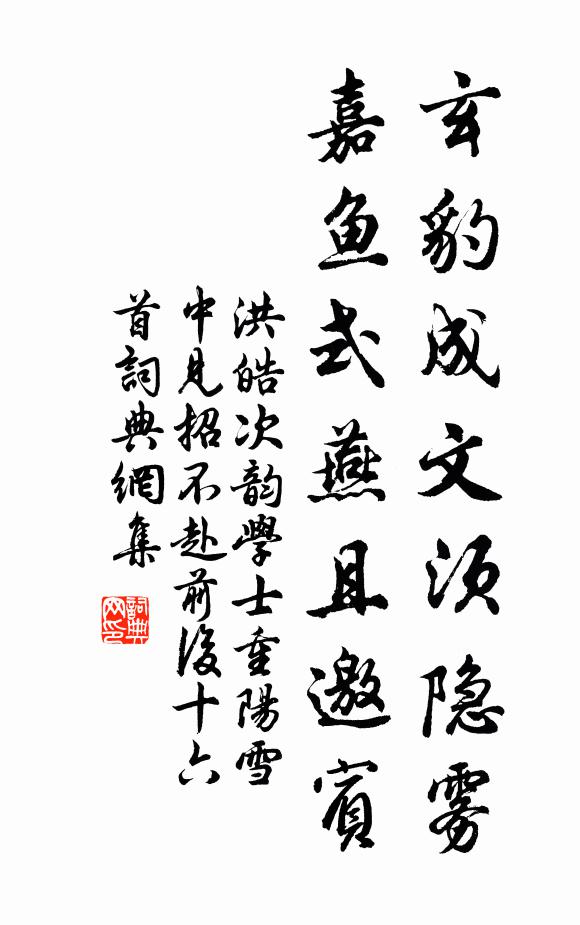 玄豹成文须隐雾
嘉鱼式燕且邀賓
洪皓次韵學士重陽雪
中見招不赴前後十六
首詞典網集
詞典
网印